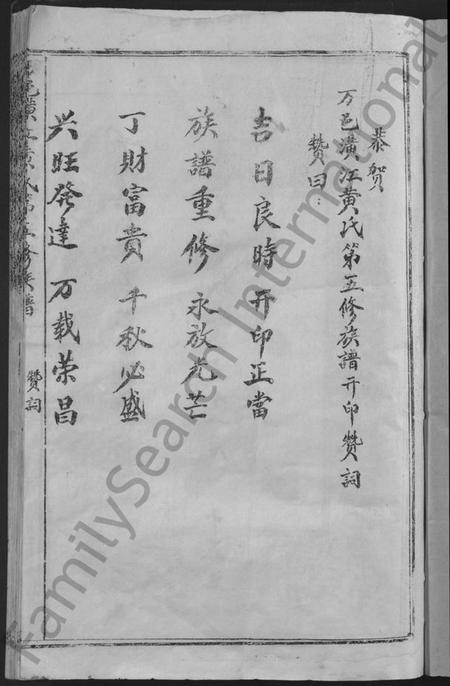 恭贺
万邑潢江黄氏第五修族譜开印赞詞
赞曰：
吉日良時 开印正當
族譜重修 永放光芒
丁財富貴 千秋必盛
兴旺發達 万载荣昌
邑潢江黄氏第五修族譜 赞詞
FamilySearch International